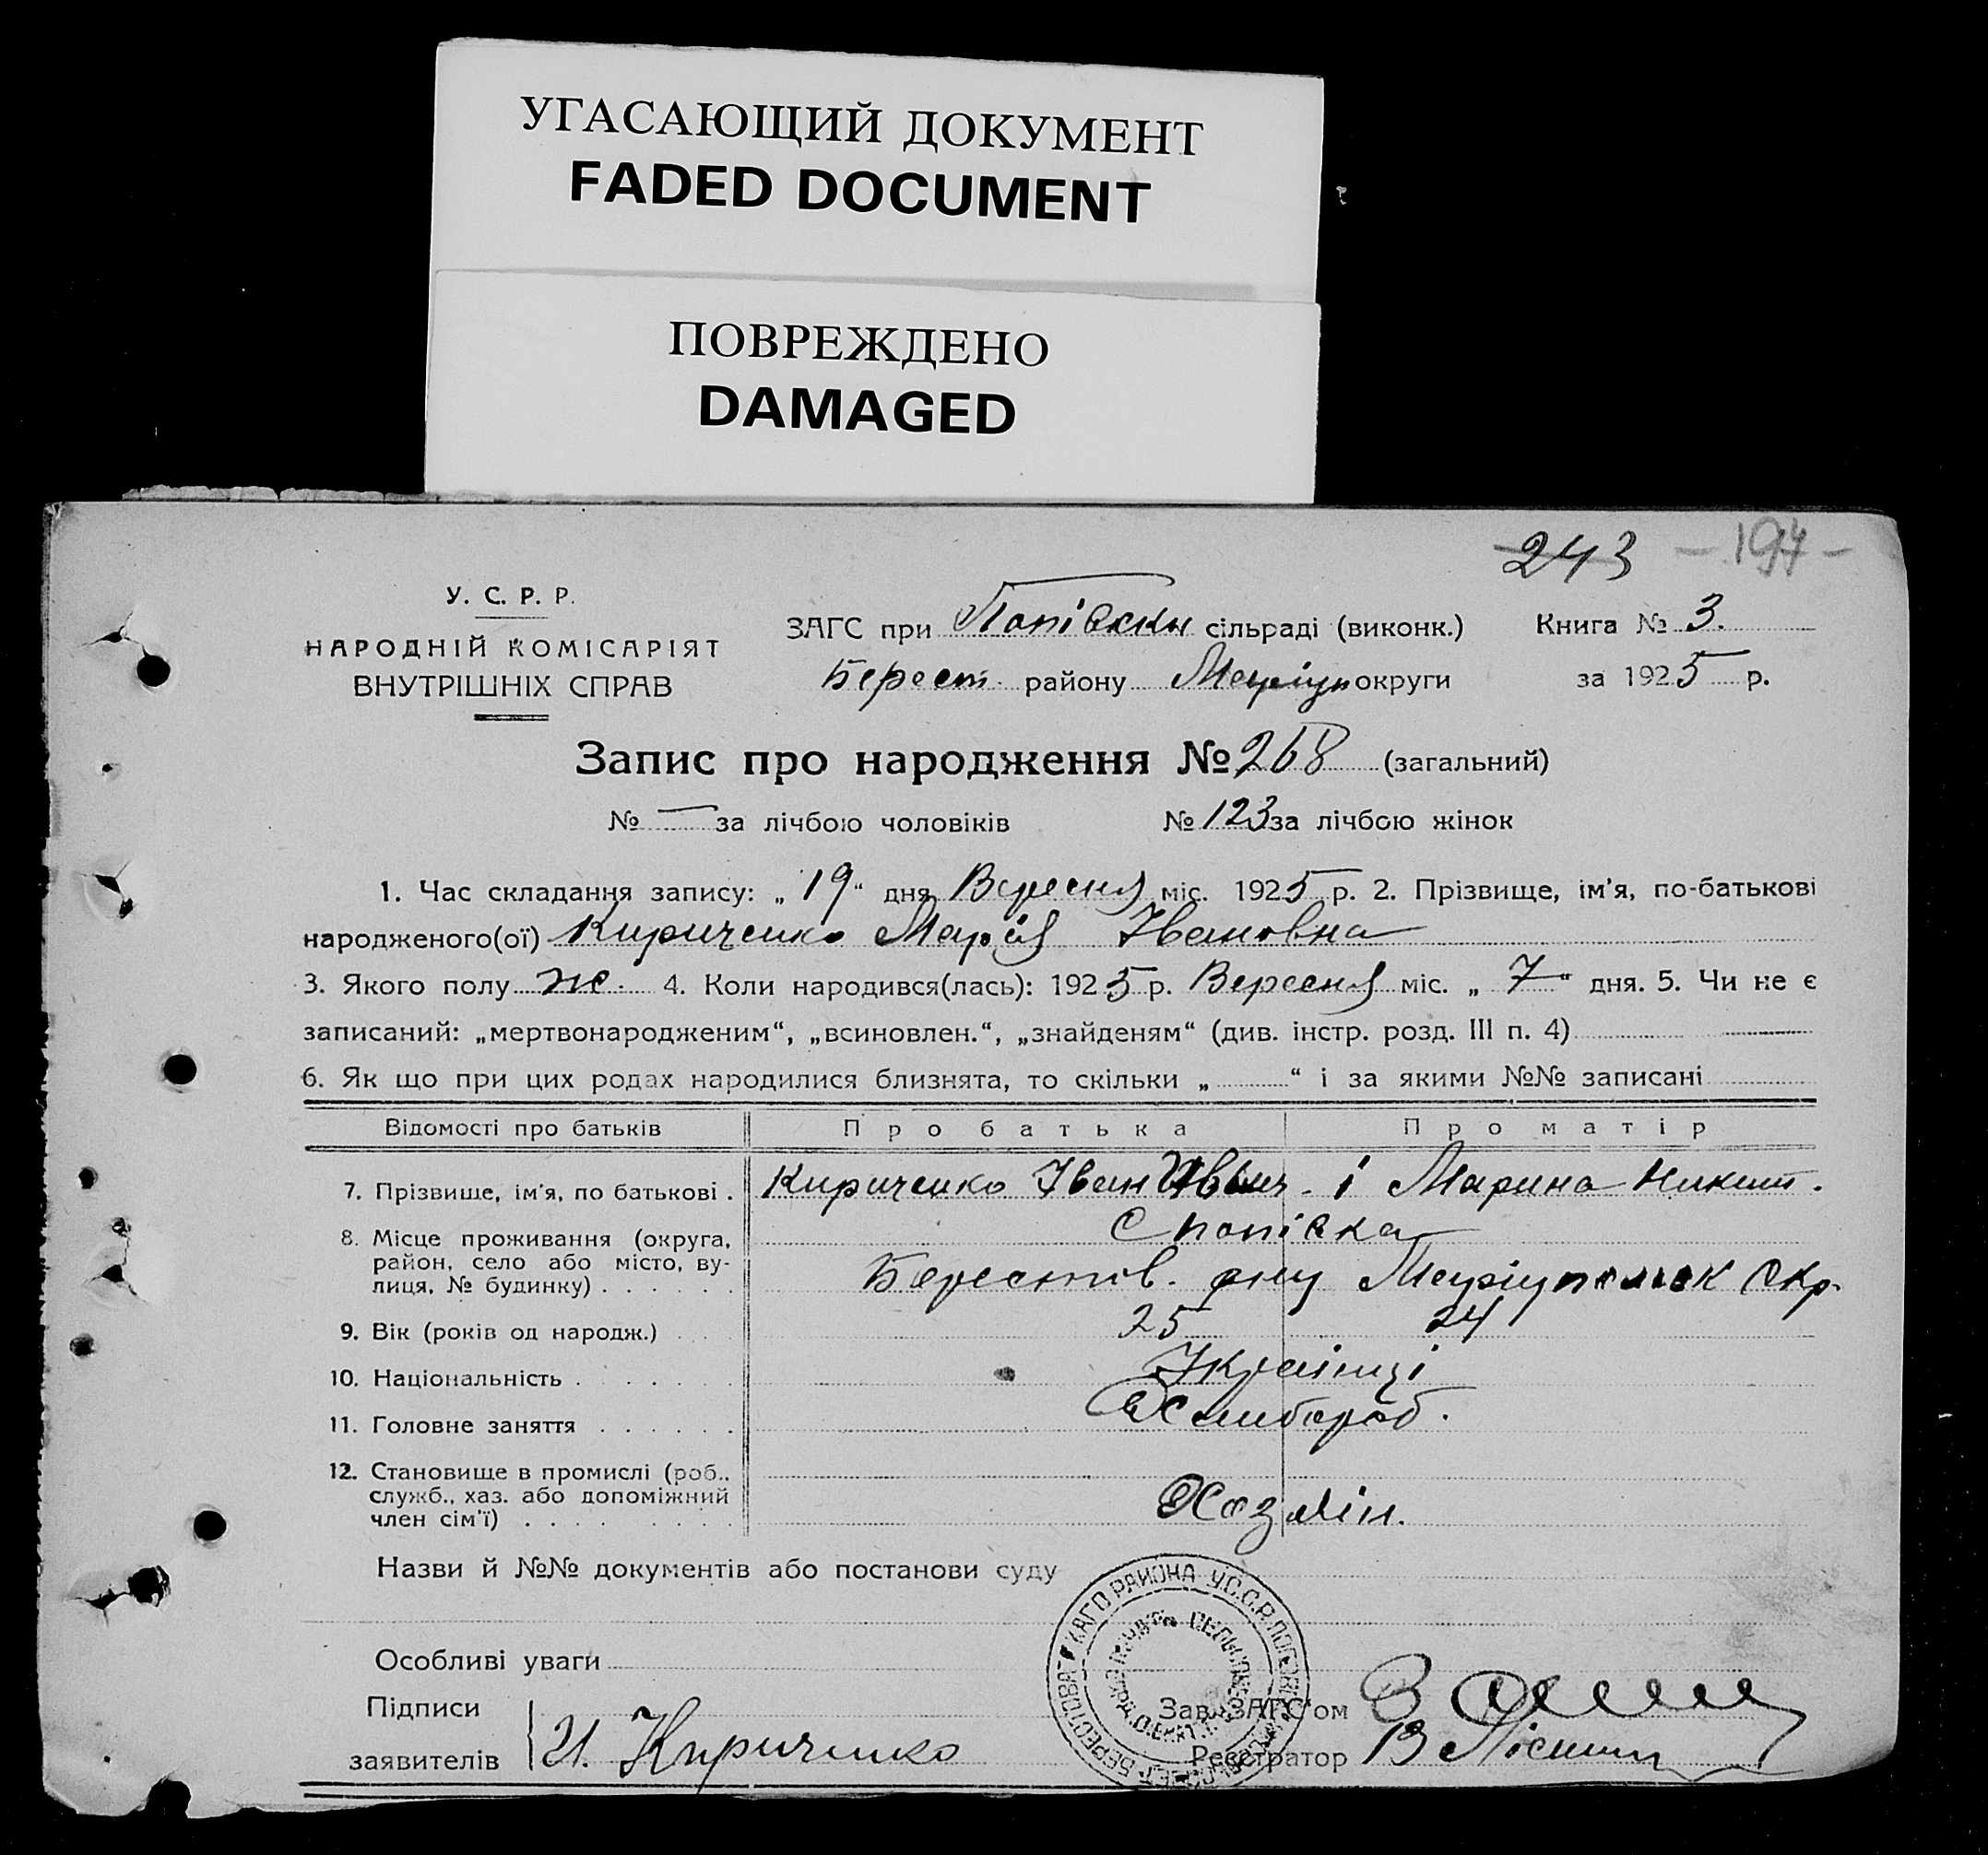 УГАСАЮЩИЙ ДОКУМЕНТ
FADED DOCUMENT
ПОВРЕЖДЕНО
DAMAGED
243 — 194 —
У. С. Р. Р.
НАРОДНІЙ КОМІСАРІЯТ
ВНУТРІШНІХ СПРАВ
ЗАГС при Попівскій сільраді (виконк.) Книга № 3.
Берест. району Маріуп округи за 1925 р.
Запис про народження № 268 (загальний)
№ — за лічбою чоловіків № 123 за лічбою жінок
1. Час складання запису: „ 19 “ дня Вересня міс. 1925 р. 2. Прізвище, ім'я, по-батькові
народженого(ої) Кириченко Марія Івановна
3. Якого полу ж. 4. Коли народився(лась): 1925 р. Вересня міс. „ 7 “ дня. 5. Чи не є
записаний: „мертвонародженим“, „всиновлен.“, „знайденям“ (див. інстр. розд. III п. 4)
6. Як що при цих родах народилися близнята, то скільки „ “ і за якими №№ записані
Відомості про батьків Про батька Про матір
7. Прізвище, ім'я, по батькові . Кириченко Іван Ив. і Марина Никит.
8. Місце проживання (округа, район, село або місто, вулиця, № будинку) . . . . . .
с Попівка
Берестов. рну Маріупольск Окр.
9. Вік (років од народж.) . . . 25 24
10. Національність . . . . . . . Українці
11. Головне заняття . . . . . . Хлибороб.
12. Становище в промислі (роб., служб., хаз. або допоміжний член сім'ї) . . . . . . . .
Хазяїн.
Назви й №№ документів або постанови суду
КАГО РАЙОНА У.С.С.Р.
Особливі уваги
Підписи
заявителів И. Кириченко
Зав. ЗАГС'ом
Реєстратор В